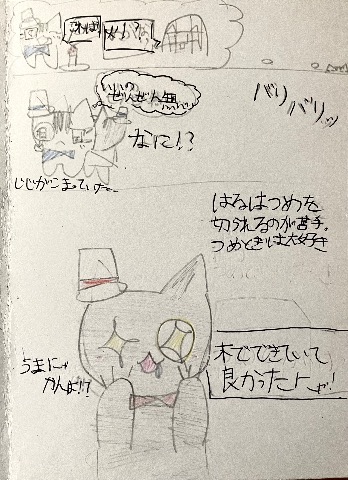 いいの
ぜんぜん無い
バリバリッ
なに!?
じじがこまっていた
はるはつめを
切られるのが苦手。
つめとぎは大好き
うまにゃ
かんは!?
木でできていて
良かったニャ!